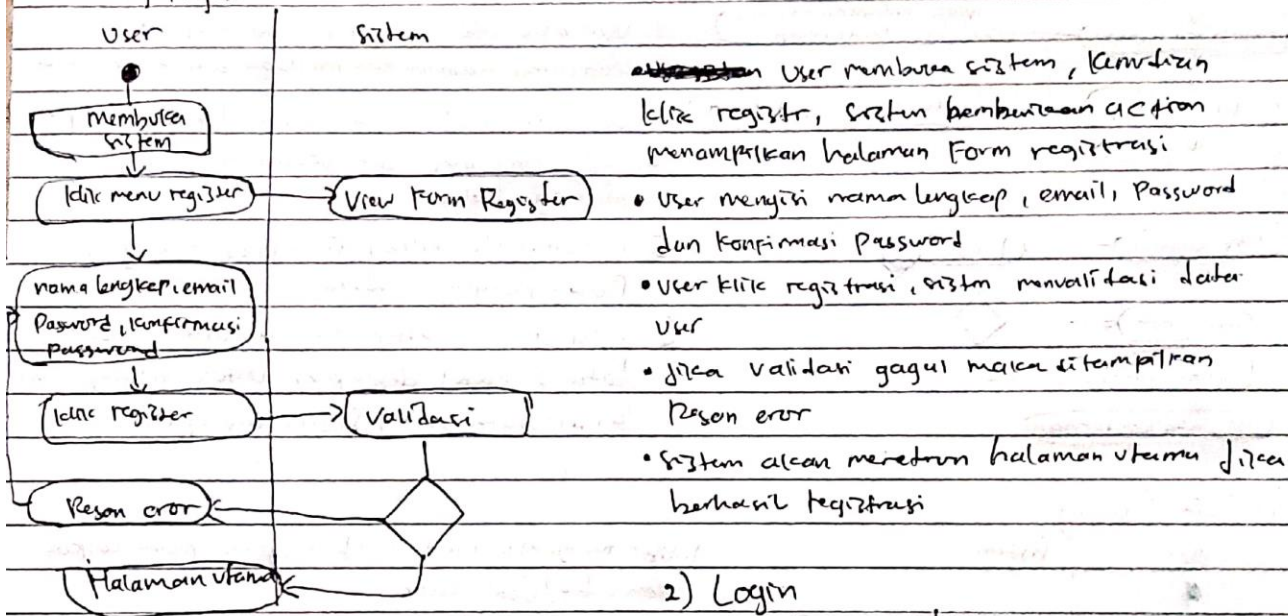 User
sistem
membuka
sistem
klik menu register
View Form Register
nama lengkap, email
Pasword, konfirmasi
password
klik register
Validasi
Pesan eror
Halaman utama
User membuka sistem, kemudian
klik registr, sistem memberikan action
menampilkan halaman Form registrasi
• User mengisi nama lengkap, email, Password
dan konfirmasi password
• User klik registrasi, sistm menvalidasi data
user
• Jika validasi gagal maka ditampilkan
Pesan eror
• sistem akan meretrun halaman utama Jika
berhasil registrasi
2) Login